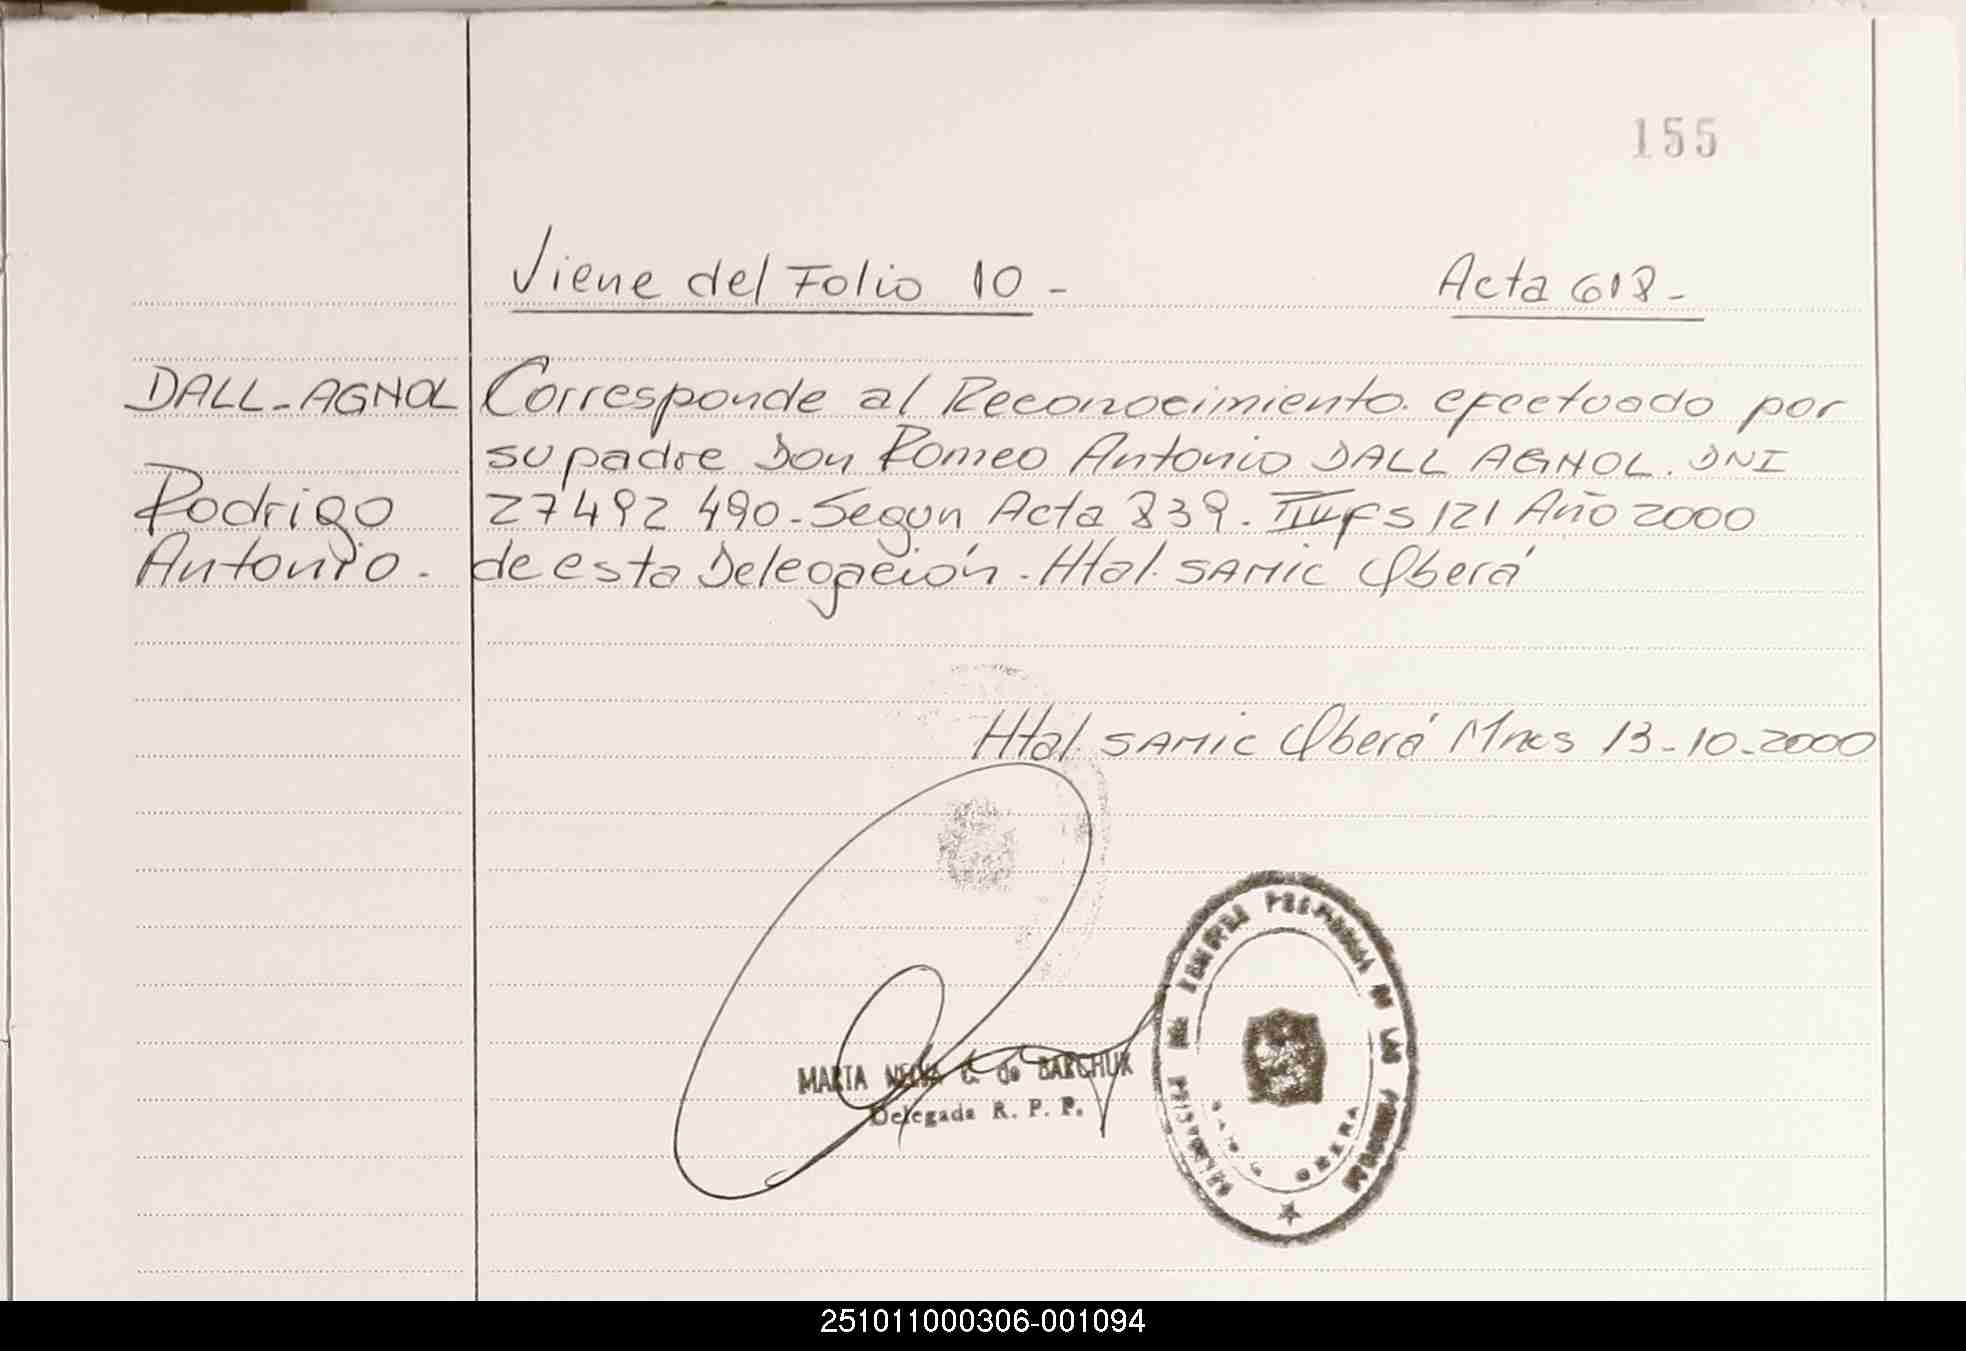 155
Viene del Folio 10 - Acta 618 -
DALL-AGNOL Corresponde al Reconocimiento. efectuado por
su padre Don Romeo Antonio DALL AGNOL. DNI
Rodrigo 27492490 - Segun Acta 839. fs 121 Año 2000
Antonio. de esta Delegación. Htal. SAMIC Oberá
Htal SAMIC Oberá Mnes 13-10-2000
MARIA NELVA C. de BARCHUK
Delegada R. P. P.
DE LAS PERSONAS
OBERA
251011000306-001094